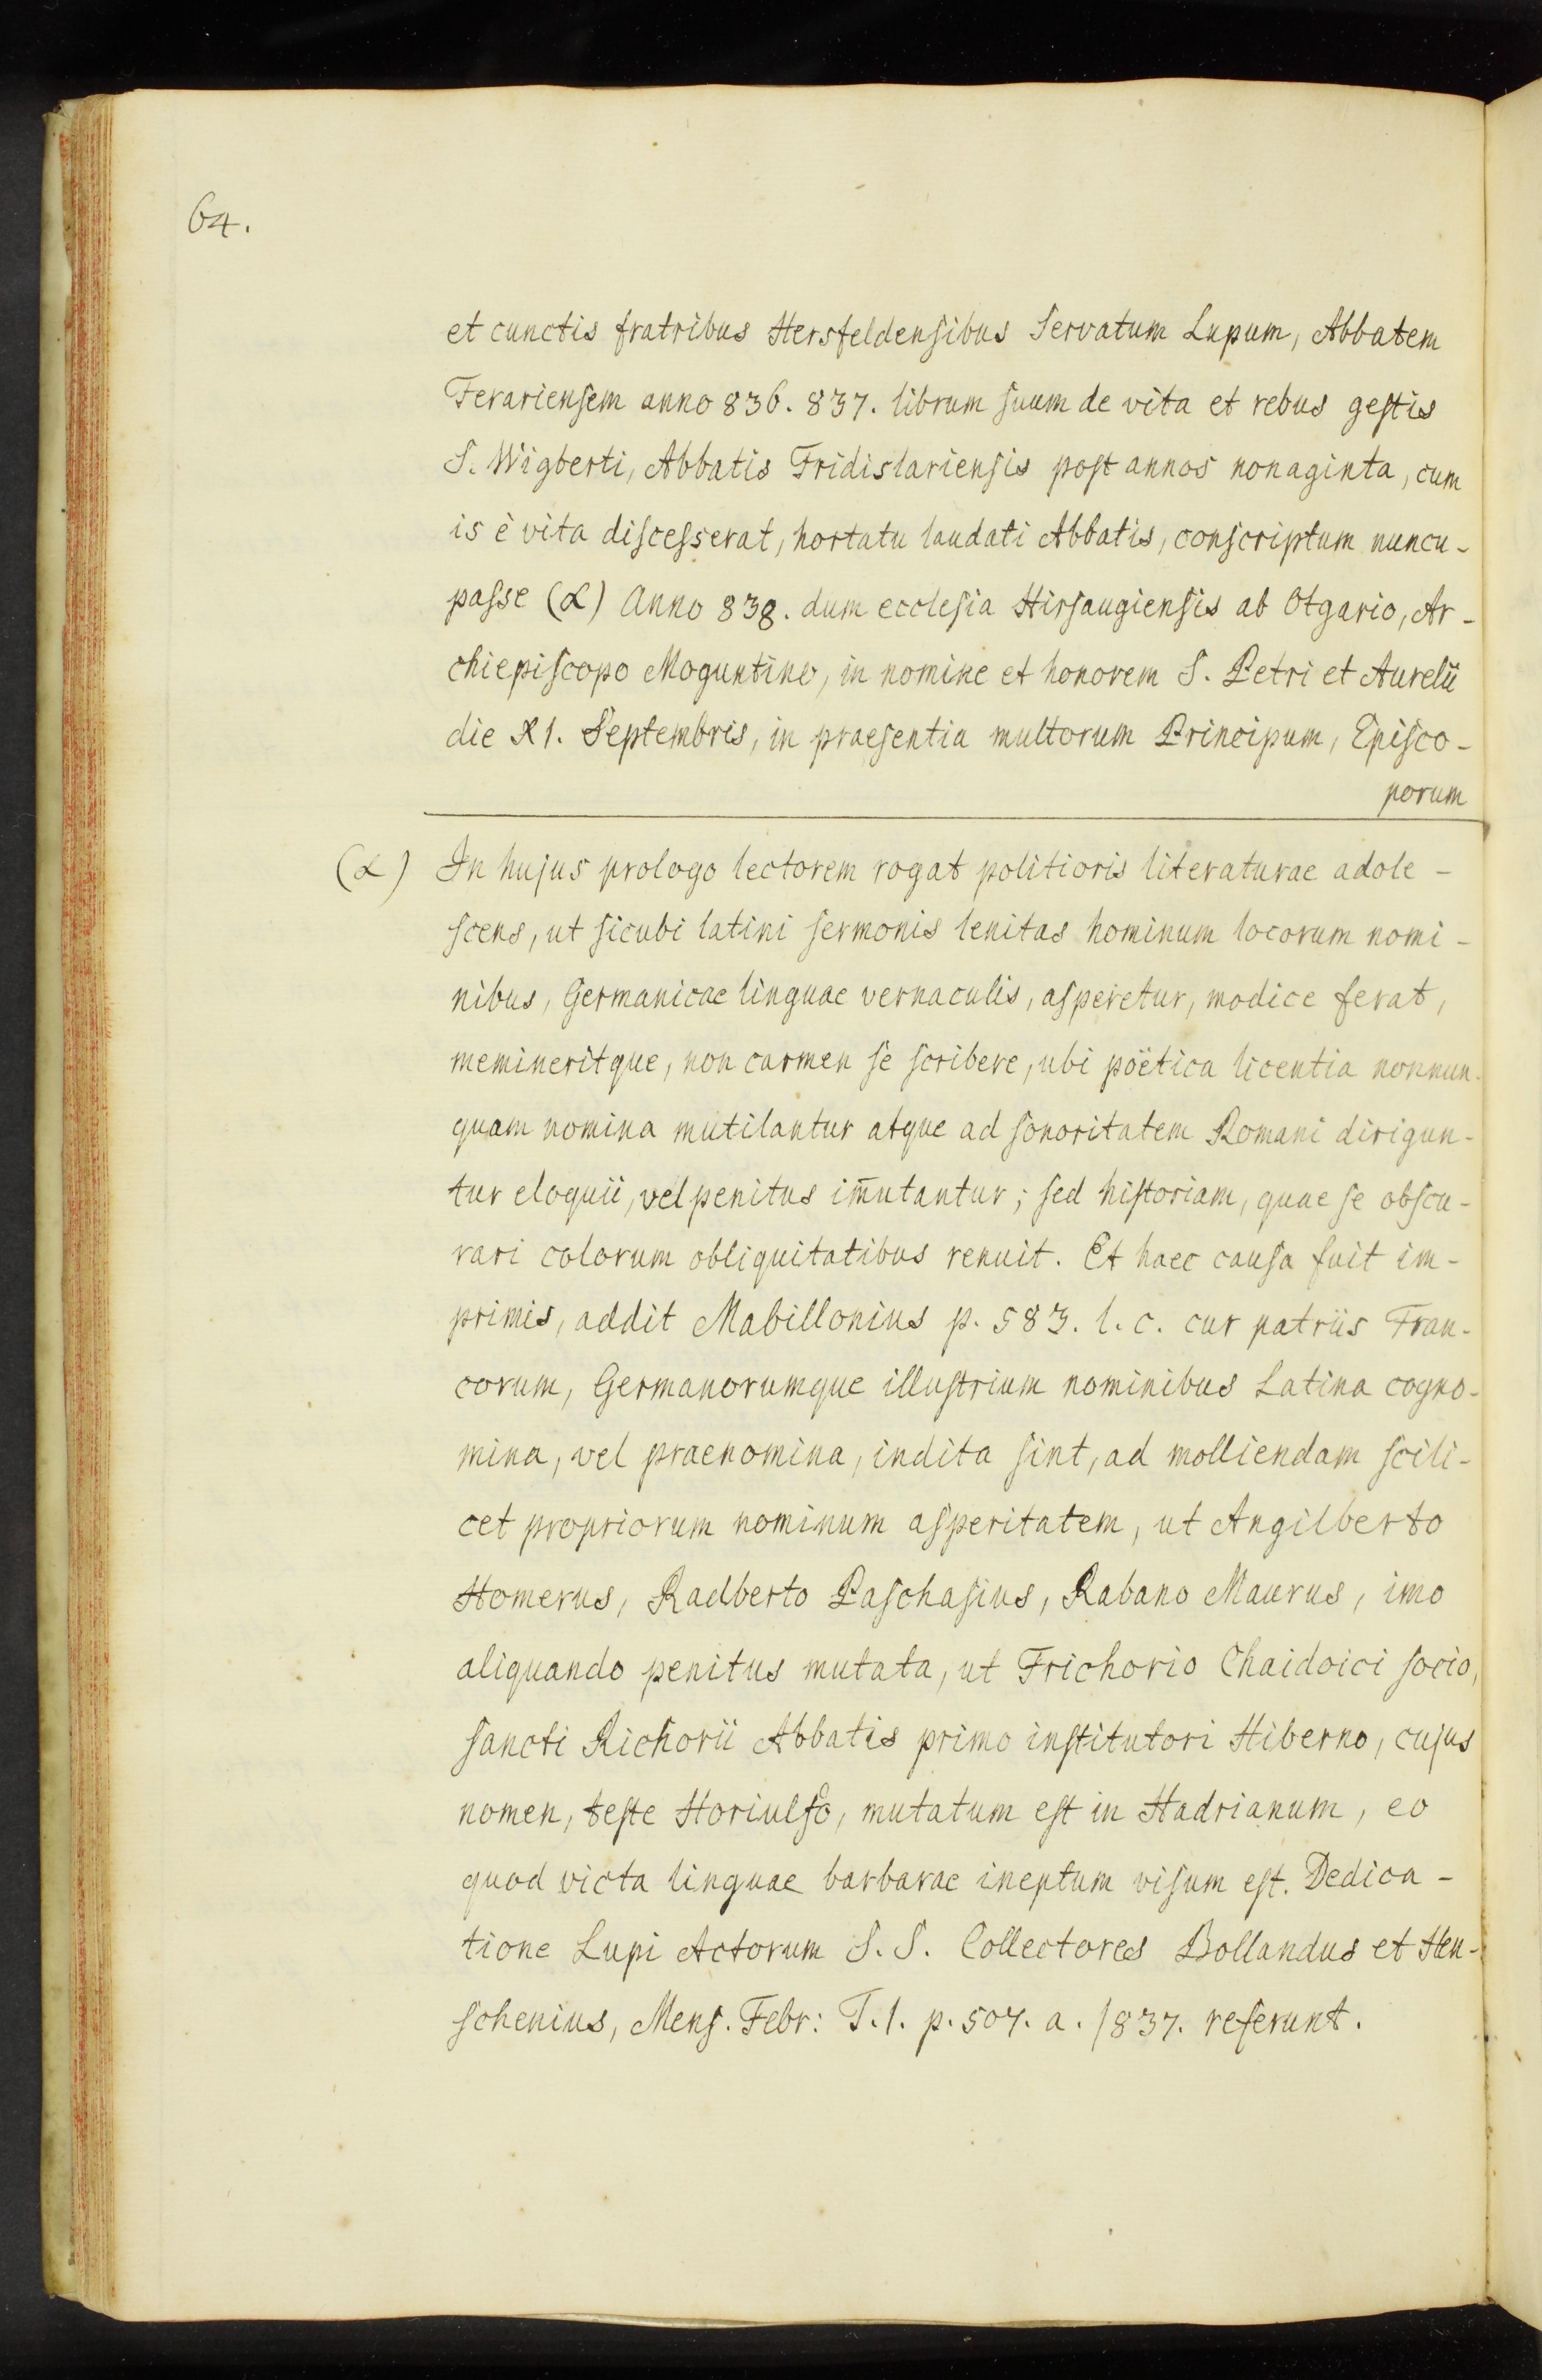 64.
et cunctis fratribus Hersfeldensibus Servatum Lupum, Abbatem
Ferariensem anno 836. 837. librum suum de vita et rebus gestis
S. Wigberti, Abbatis Fridislariensis post annos nonaginta, cum
is è vita discesserat, hortatu laudati Abbatis, conscriptum nuncu-
passe (α) Anno 838. dum ecclesia Hirsaugiensis ab Otgario, Ar-
chiepiscopo Moguntino, in nomine et honorem S. Petri et Aurelii
die XI. Septembris, in praesentia multorum Principum, Episco-
porum
(α) In hujus prologo lectorem rogat politioris literaturae adole-
scens, ut sicubi latini sermonis lenitas hominum locorum nomi-
nibus, Germanicae linguae vernaculis, asperetur, modice ferat,
memineritque, non carmen se scribere, ubi poëtica licentia nonnun-
quam nomina mutilantur atque ad sonoritatem Romani dirigun-
tur eloquii, vel penitus im̄utantur; sed historiam, quae se obscu-
rari colorum obliquitatibus renuit. Et haec causa fuit im-
primis, addit Mabillonius p. 583. l. c. cur patriis Fran-
corum, Germanorumque illustrium nominibus Latina cogno-
mina, vel praenomina, indita sint, ad molliendam scili-
cet propriorum nominum asperitatem, ut Angilberto
Homerus, Radberto Paschasius, Rabano Maurus, imo
aliquando penitus mutata, ut Frichorio Chaidoici socio,
sancti Richorii Abbatis primo institutori Hiberno, cujus
nomen, teste Horiulfo, mutatum est in Hadrianum, eo
quod victa linguae barbarae ineptum visum est. Dedica-
tione Lupi Actorum S. S. Collectores Bollandus et Hen-
schenius, Mens. Febr: T. 1. p. 507. a. /837. referunt.